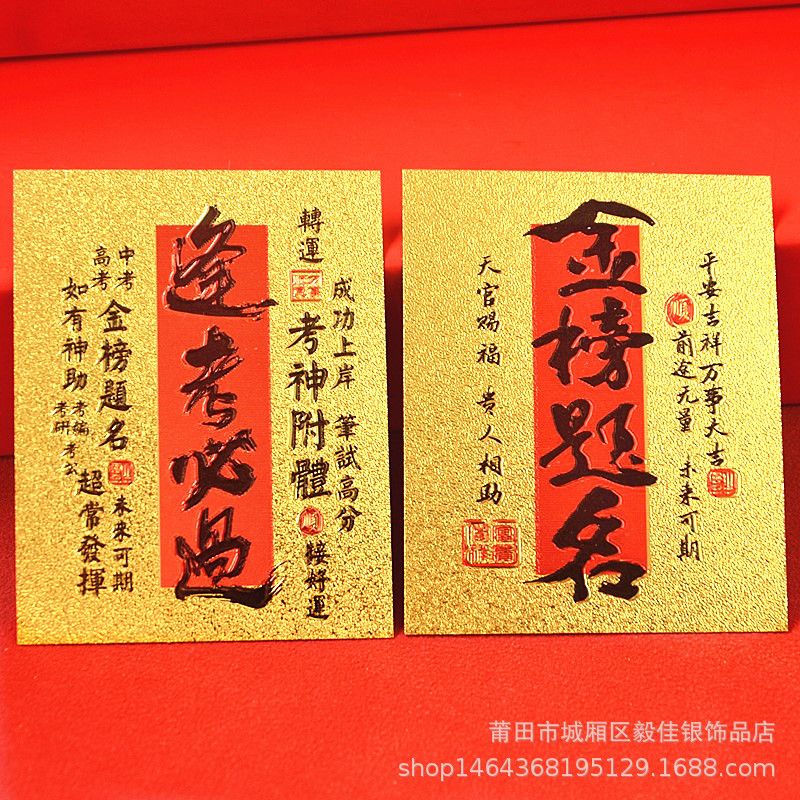 逢考必過
轉運
成功上岸 筆試高分
考神附體
接好運
順
中考
高考
金榜題名
未來可期
如有神助
考編
考研
考公
超常發揮
金榜题名
平安吉祥万事大吉
順
前途无量 未来可期
天官赐福 贵人相助
莆田市城厢区毅佳银饰品店
shop1464368195129.1688.com